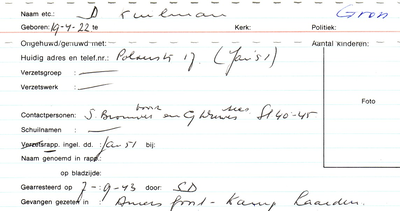 Naam etc.: D Kuelman Gron
Geboren: 19-4-22 te Kerk: Politiek:
Ongehuwd/gehuwd met: Aantal kinderen:
Huidig adres en telef.nr.: 17. (Jan '51)
Verzetsgroep :
Verzetswerk :
Foto
Contactpersonen: S. Brouwer en G St 40-45
Schuilnamen :
Verzetsrapp. ingel. dd. : Jan 51 bij:
Naam genoemd in rapp.:
op bladzijde:
Gearresteerd op 7-9-43 door: SD
Gevangen gezeten in : Amersfoort - Kamp